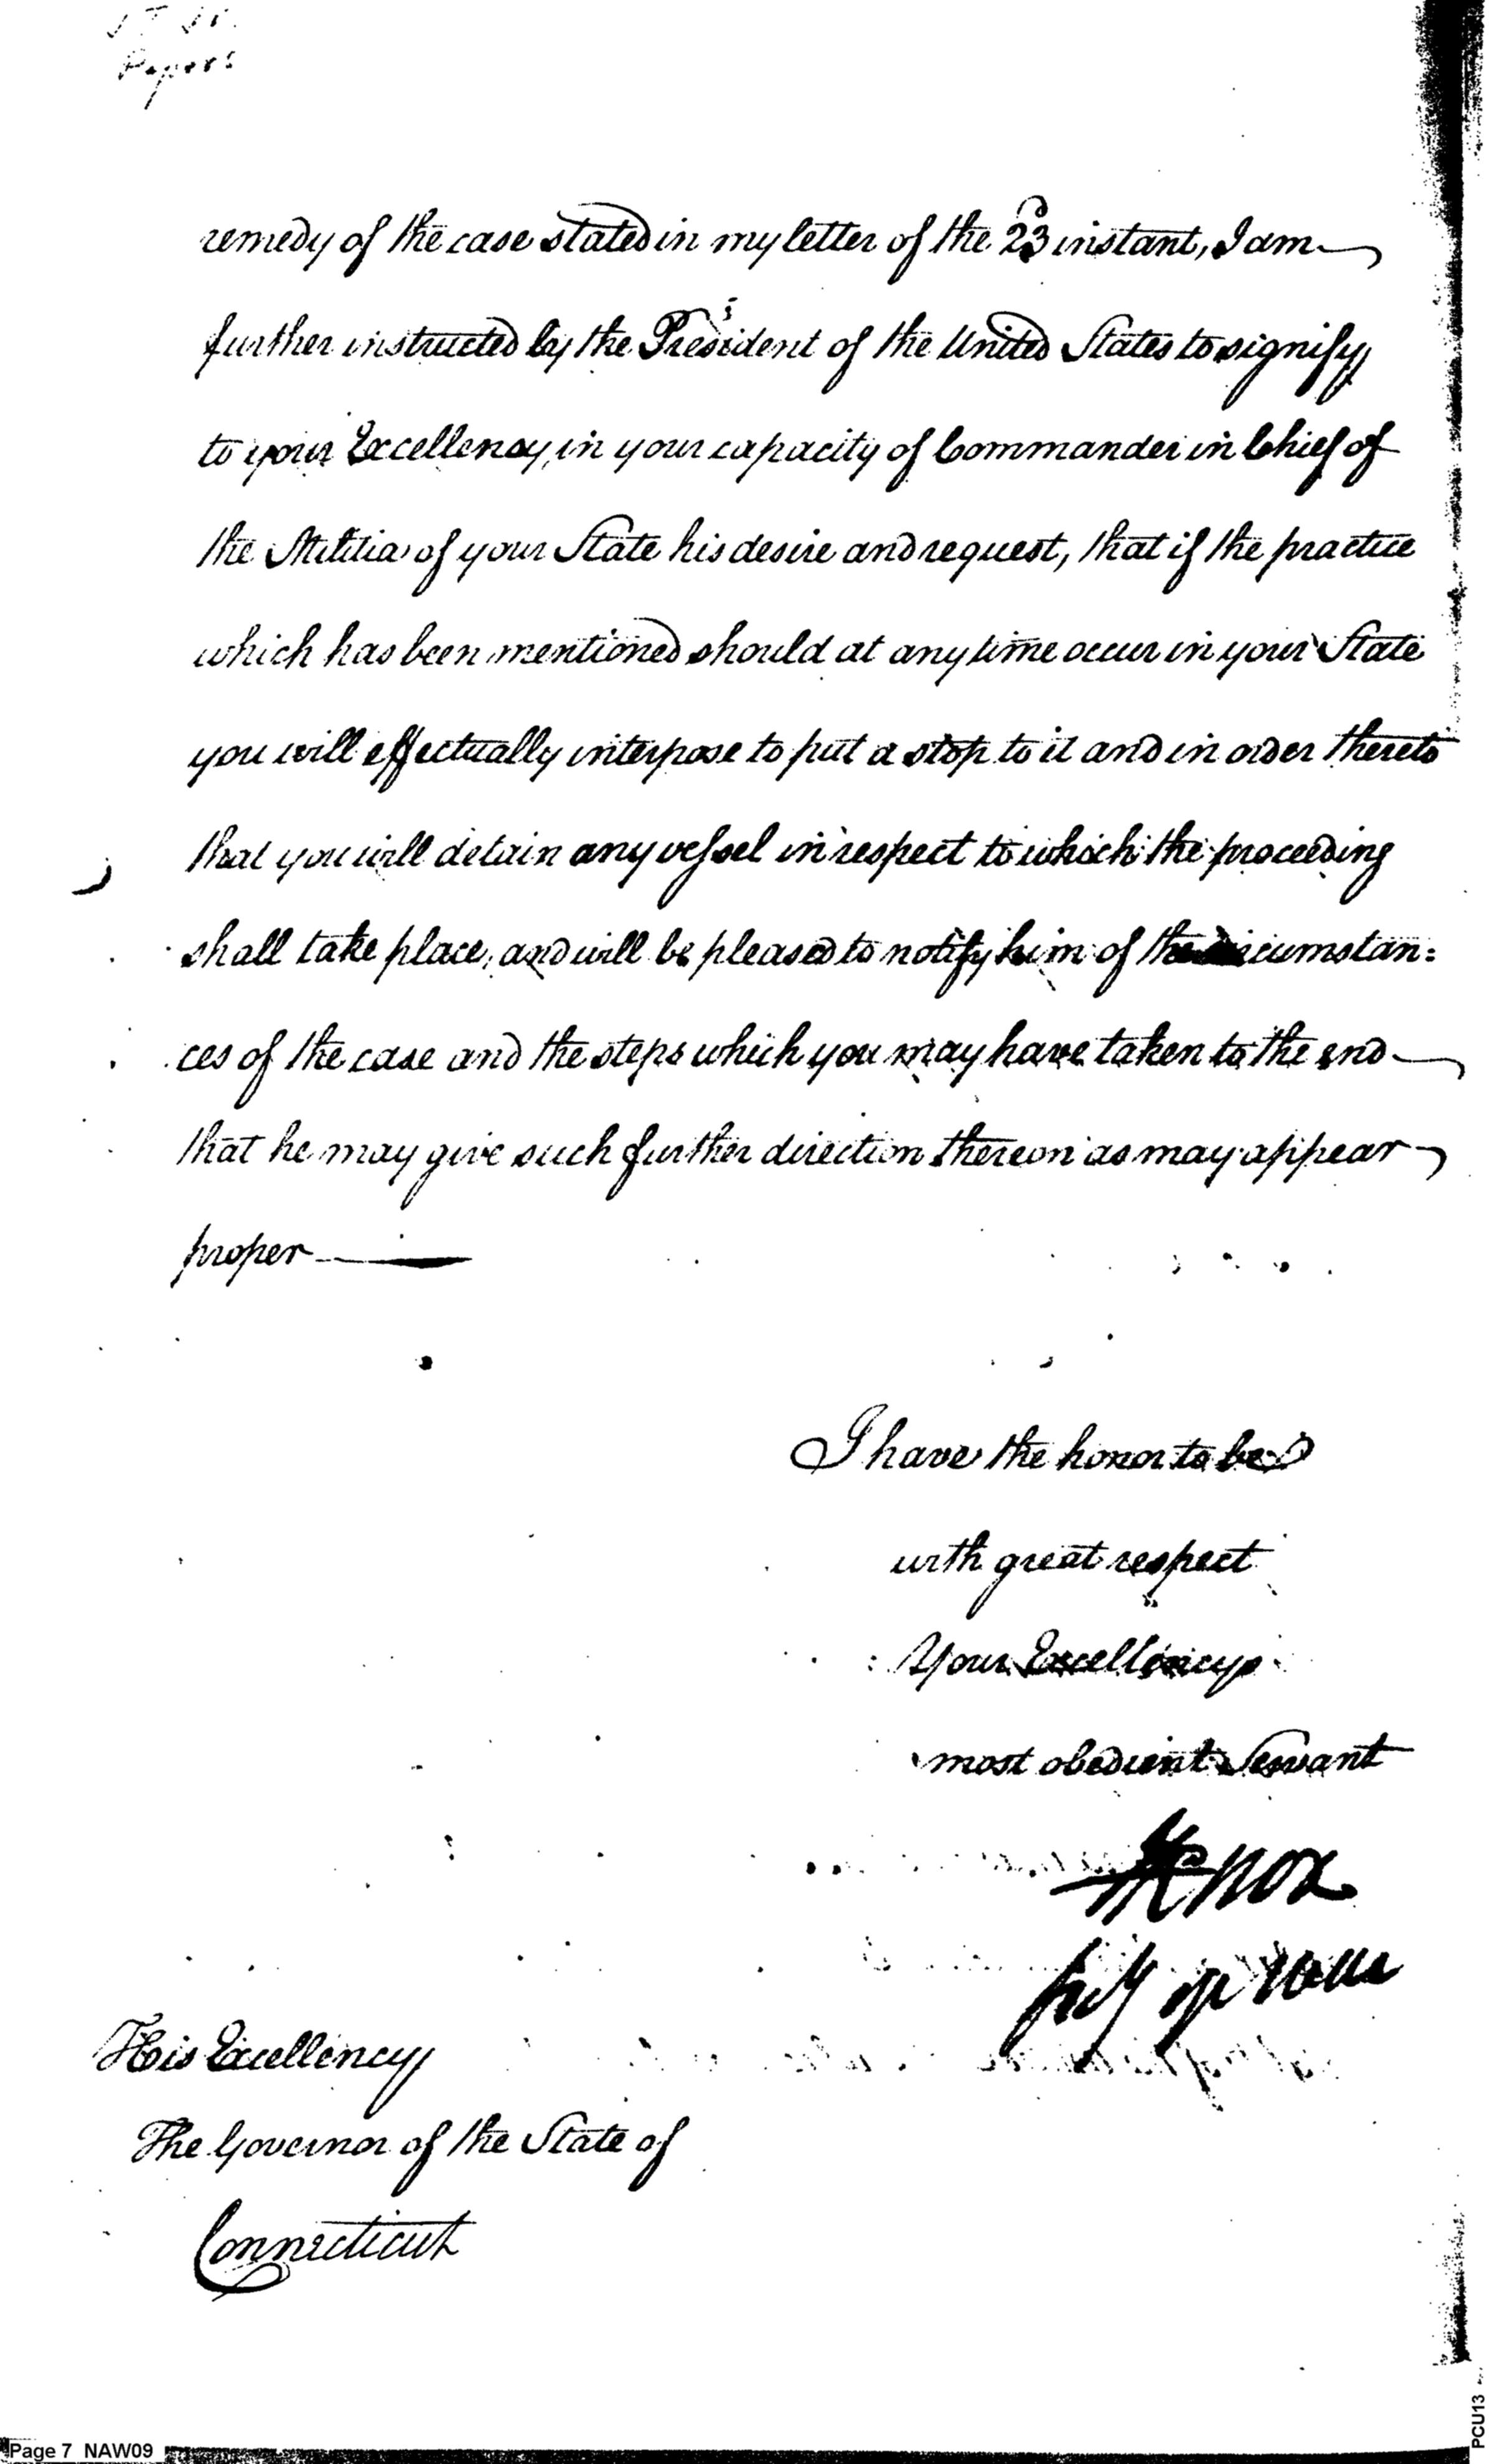 Papers
remedy of the case stated in my letter of the 23d instant, I am
further instructed by the President of the United States to signify
to your Excellency, in your capacity of Commander in Chief of
the Militia of your State his desire and request, that if the practice
which has been mentioned should at any time occur in your State
you will effectually interpose to put a stop to it and in order thereto
that you will detain any vessel in respect to which the proceeding
shall take place, and will be pleased to notify him of the circumstan=
ces of the case and the steps which you may have taken to the end
that he may give such further direction thereon as may appear
proper
I have the honor to be
with great respect
Your Excellencys
most obedient Servant
HKnox
Secy of War
His Excellency
The Governor of the State of
Connecticut
Page 7 NAW09
PCU13